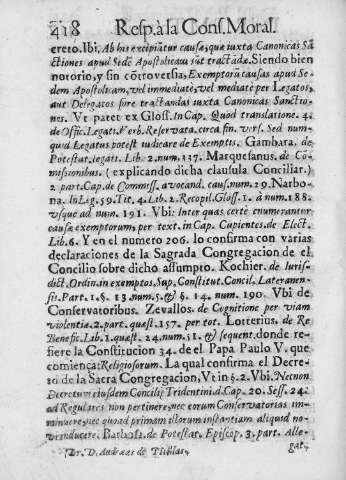 418 Resp. à la Cons. Moral.
creto. Ibi, Ab his excipiãtur causæ, quæ iuxta Canonicas Sã-
ctiones apud Sedẽ Apostolicam sũt tractãdæ. Siendo bien
notorio, y sin cõtroversia, Exemptorũ causas apud Se-
dem Apostolicam, vel immediatè, vel mediatè per Legatos,
aut Delegatos fore tractandas iuxta Canonicas Sanctio-
nes. Vt patet ex Gloss. In Cap. Quod translatione. 4.
de Offic. Legati. Verb. Reservata. circa fin. vers. Sed num-
quid Legatus potest iudicare de Exemptis. Gambara, de
Potestat. legati. Lib. 2. num. 137. Marquesanus. de Co-
missionibus. (explicando dicha clausula Conciliar.)
2 part. Cap. de Commiss. avocand. caus. num. 29. Narbo-
na. In Lig. 59. Tit. 4. Lib. 2. Recopil. Gloss. 1. à num. 188.
vsque ad num. 191. Vbi: Inter quas certè enumerantur
causæ exemptorum, per text. in Cap. Cupientes. de Elect.
Lib. 6. Y en el numero 206. lo confirma con varias
declaraciones de la Sagrada Congregacion de el
Concilio sobre dicho assumpto. Kochier. de Iuris-
dict. Ordin. in exemptos. Sup. Constitut. Concil. Lateranen-
sis. Part. 1. §. 13 num. 5. & §. 14. num. 190. Vbi de
Conservatoribus. Zevallos. de Cognitione per viam
violentiæ. 2. part. quæst. 157. per tot. Lotterius. de Re
Benefic. Lib. 1. quæst. 24. num. 51. & sequent. donde re-
fiere la Constitucion 34. de el Papa Paulo V. que
comiença: Religiosorum. La qual confirma el Decre-
to de la Sacra Congregacion, Vt in §. 2. Vbi. Necnon
Decretum eiusdem Concilij Tridentini. d. Cap. 20. Sess. 24.
ad Regulares non pertinere, nec eorum Conservatorias im-
minuere, nec quod primam illorum instantiam aliquid no-
vi inducere. Barbosa. de Potestat. Episcop. 3. part. Alle-
gat.
Dr. D. Andreas de